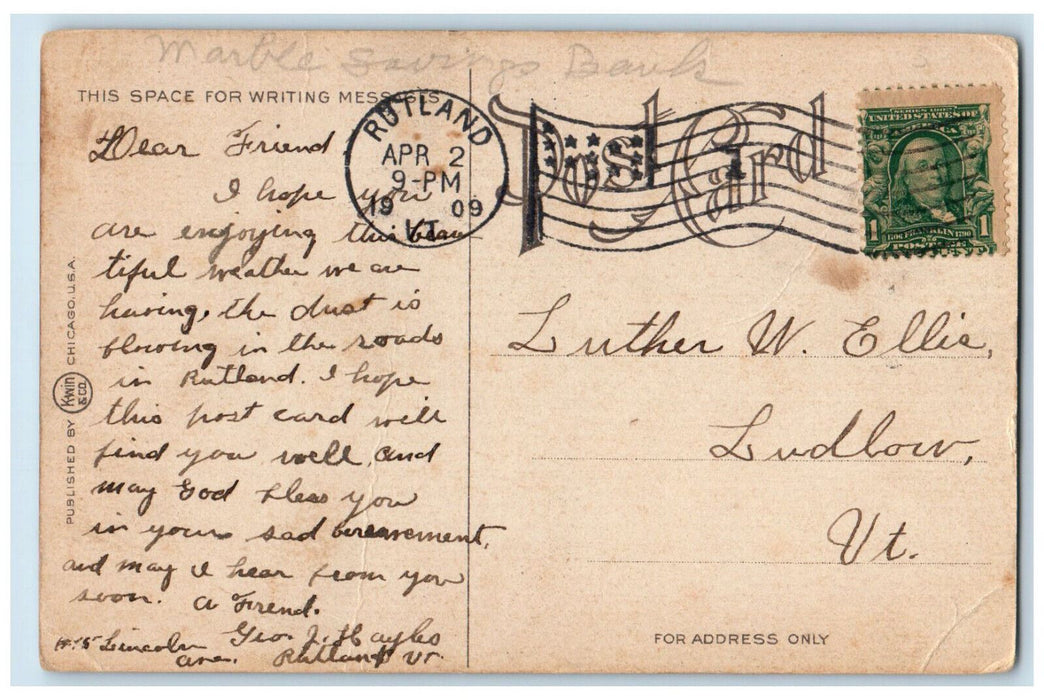 Marble Savings Bank
THIS SPACE FOR WRITING MESSAGES
Post Card
RUTLAND
APR 2
9-PM
19 09
VT.
1
SERIES 1902
UNITED STATES OF
AMERICA
1 FRANKLIN 1790 1
POSTAGE
Dear Friend
I hope you
are enjoying this beau
tiful weather we are
having, the dust is
blowing in the roads
in Rutland. I hope
this post card will
find you well, and
may God bless you
in your sad bereavement,
and may I hear from you
soon. A Frend.
Geo. J. Hayles
Lincoln
ave. Rutland Vt.
Luther W. Ellis,
Ludlow,
Vt.
FOR ADDRESS ONLY
PUBLISHED BY K-WIN & CO. CHICAGO, U.S.A.